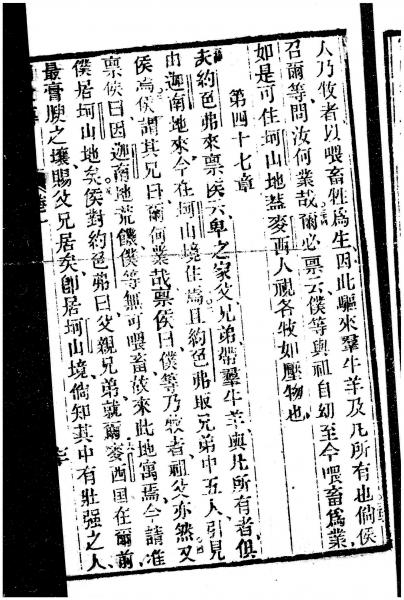 人乃牧者以喂畜牲爲生、因此驅來羣牛羊及凡所有也倘侯
召爾等問汝何業哉爾必禀云僕等與祖自幼至今喂畜爲業、
如是可住坷山地蓋麥西人視各牧如壓物也
第四十七章
夫約色弗來禀侯云卑之家父兄弟、帶羣牛羊、與凡所有者俱
由迦南地來今在坷山境住焉且約色弗取兄弟中五人引見
侯焉侯謂其兄曰爾何業哉禀侯曰僕等乃牧者祖父亦然又
禀侯曰因迦南地荒饑僕等無可喂畜故來此地寓焉今請准
僕居坷山地矣侯對約色弗曰父親兄弟就爾麥西国在爾前
最膏腴之壤賜父兄居矣卽居坷山境倘知其中有壯强之人、